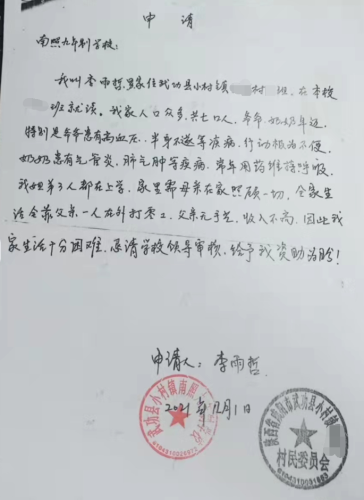 申请
南照九年制学校：
我叫李雨哲，家住武功县小村镇 村 组，在本校
班就读。我家人口众多，共七口人，爷爷、奶奶年迈，
特别是爷爷患有高血压，半身不遂等疾病，行动极为不便，
奶奶患有气管炎，肺气肿等疾病，常年用药维持呼吸，
我姐弟3人都在上学，家里靠母亲在家照顾一切，全家生
活全靠父亲一人在外打零工，父亲无手艺，收入不高，因此我
家生活十分困难，恳请学校领导审批，给予我资助为盼！
申请人：李雨哲
2021年12月1日
武功县小村镇南照
陕西省咸阳市武功县小村镇
村民委员会